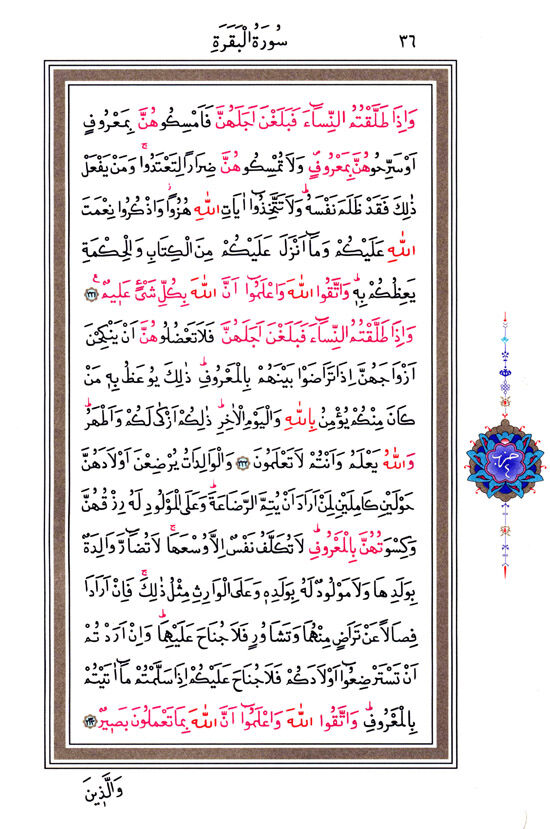 ٣٦ سُورَةُ الْبَقَرَةِ
وَاِذَا طَلَّقْتُمُ النِّسَٓاءَ فَبَلَغْنَ اَجَلَهُنَّ فَاَمْسِكُوهُنَّ بِمَعْرُوفٍ
اَوْ سَرِّحُوهُنَّ بِمَعْرُوفٍۖ وَلَا تُمْسِكُوهُنَّ ضِرَارًا لِتَعْتَدُواۚ وَمَنْ يَفْعَلْ
ذٰلِكَ فَقَدْ ظَلَمَ نَفْسَهُۜ وَلَا تَتَّخِذُٓوا اٰيَاتِ اللّٰهِ هُزُوًاۘ وَاذْكُرُوا نِعْمَتَ
اللّٰهِ عَلَيْكُمْ وَمَٓا اَنْزَلَ عَلَيْكُمْ مِنَ الْكِتَابِ وَالْحِكْمَةِ
يَعِظُكُمْ بِهِۜ وَاتَّقُوا اللّٰهَ وَاعْلَمُٓوا اَنَّ اللّٰهَ بِكُلِّ شَيْءٍ عَلِيمٌ۟ ﴿٢٣١﴾
وَاِذَا طَلَّقْتُمُ النِّسَٓاءَ فَبَلَغْنَ اَجَلَهُنَّ فَلَا تَعْضُلُوهُنَّ اَنْ يَنْكِحْنَ
اَزْوَاجَهُنَّ اِذَا تَرَاضَوْا بَيْنَهُمْ بِالْمَعْرُوفِۜ ذٰلِكَ يُوعَظُ بِهِ مَنْ
كَانَ مِنْكُمْ يُؤْمِنُ بِاللّٰهِ وَالْيَوْمِ الْاٰخِرِۜ ذٰلِكُمْ اَزْكٰى لَكُمْ وَاَطْهَرُۜ
وَاللّٰهُ يَعْلَمُ وَاَنْتُمْ لَا تَعْلَمُونَ ﴿٢٣٢﴾ وَالْوَالِدَاتُ يُرْضِعْنَ اَوْلَادَهُنَّ
حَوْلَيْنِ كَامِلَيْنِ لِمَنْ اَرَادَ اَنْ يُتِمَّ الرَّضَاعَةَۜ وَعَلَى الْمَوْلُودِ لَهُ رِزْقُهُنَّ
وَكِسْوَتُهُنَّ بِالْمَعْرُوفِۜ لَا تُكَلَّفُ نَفْسٌ اِلَّا وُسْعَهَاۚ لَا تُضَٓارَّ وَالِدَةٌ
بِوَلَدِهَا وَلَا مَوْلُودٌ لَهُ بِوَلَدِهِ وَعَلَى الْوَارِثِ مِثْلُ ذٰلِكَۚ فَاِنْ اَرَادَا
فِصَالًا عَنْ تَرَاضٍ مِنْهُمَا وَتَشَاوُرٍ فَلَا جُنَاحَ عَلَيْهِمَاۜ وَاِنْ اَرَدْتُمْ
اَنْ تَسْتَرْضِعُٓوا اَوْلَادَكُمْ فَلَا جُنَاحَ عَلَيْكُمْ اِذَا سَلَّمْتُمْ مَٓا اٰتَيْتُمْ
بِالْمَعْرُوفِۜ وَاتَّقُوا اللّٰهَ وَاعْلَمُٓوا اَنَّ اللّٰهَ بِمَا تَعْمَلُونَ بَصِيرٌ ﴿٢٣٣﴾
وَالَّذِينَ
حزب
٤